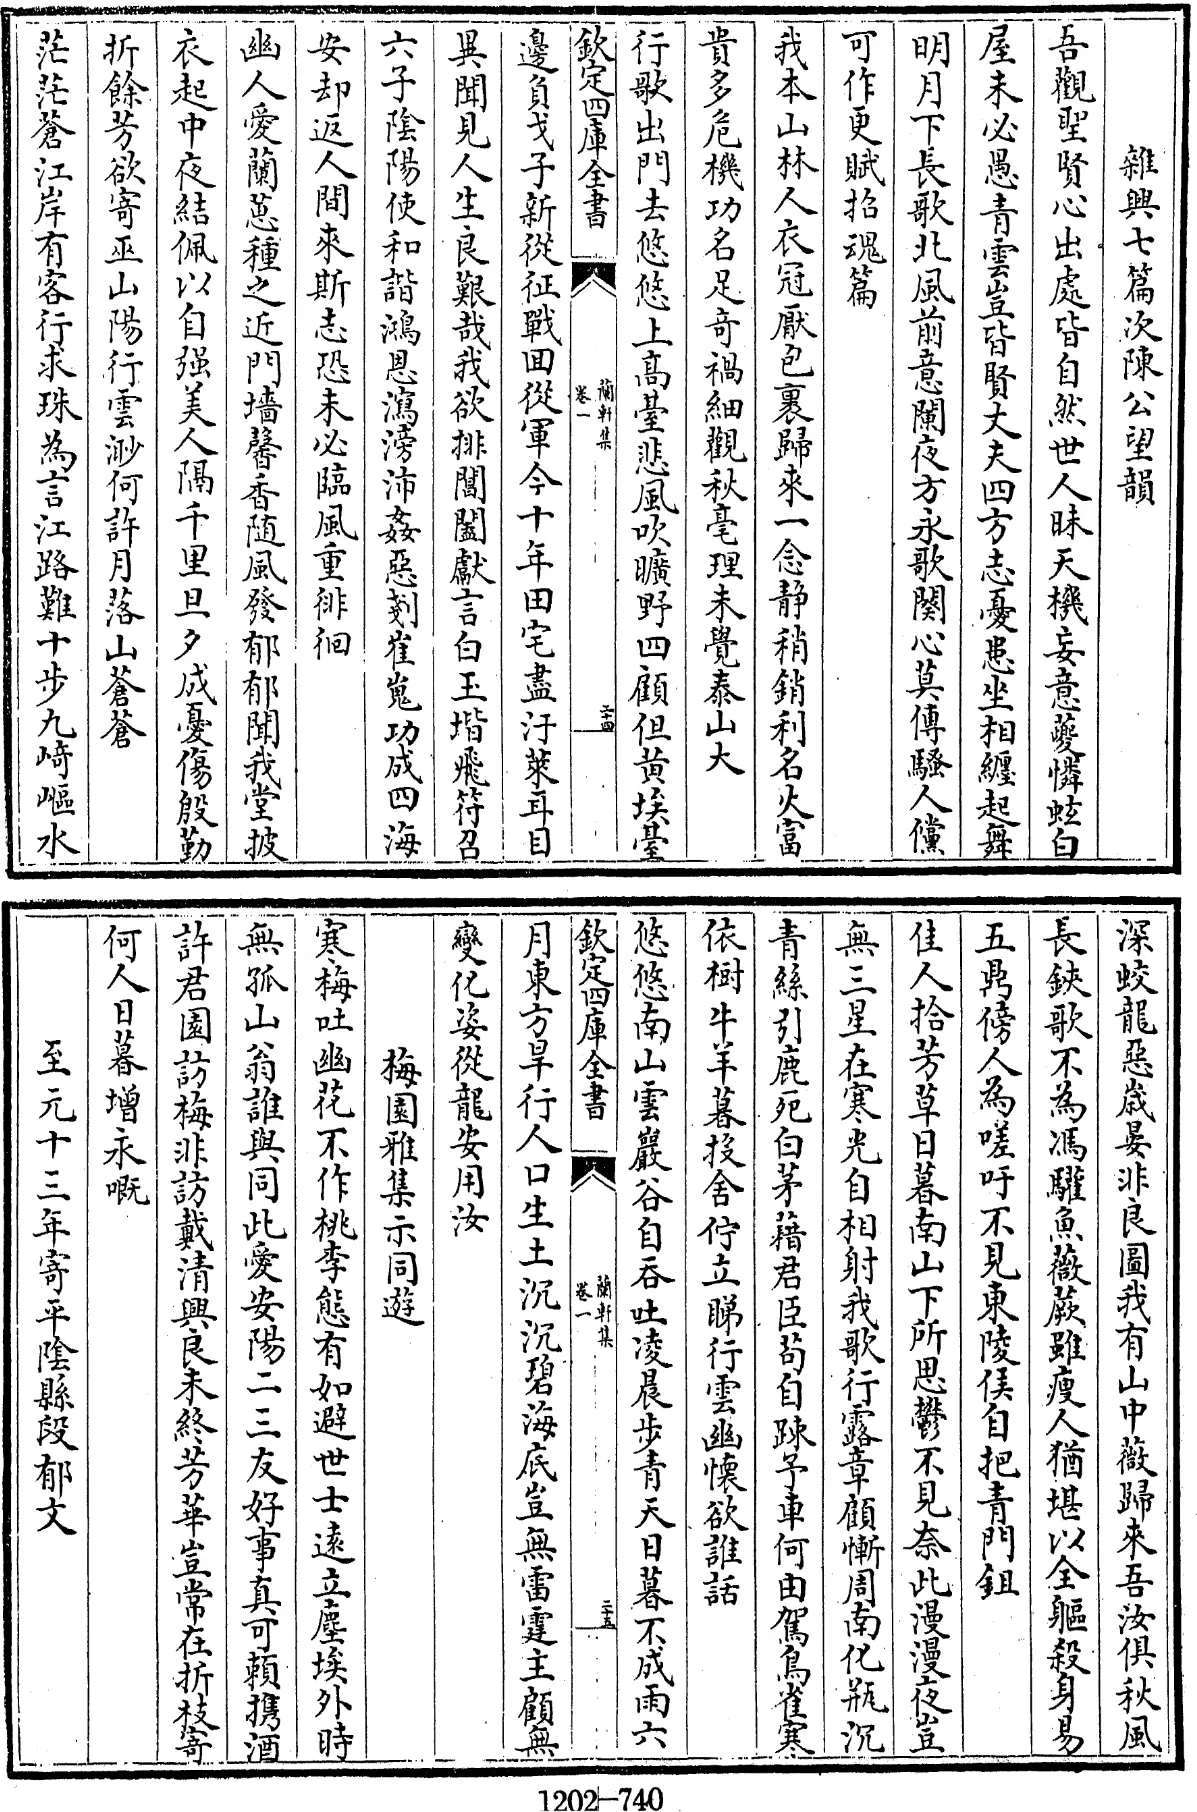 雜興七篇次陳公望韻
吾觀聖賢心出處皆自然世人昧天機妄意夔憐蚿白
屋未必愚青雲豈皆賢丈夫四方志憂患坐相纏起舞
明月下長歌北風前意闌夜方永歌闋心莫傳騷人儻
可作更賦招魂篇
我本山林人衣冠厭包裹歸來一念静稍銷利名火富
貴多危機功名足奇禍細觀秋毫理未覺泰山大
行歌出門去悠悠上高臺悲風吹曠野四顧但黄埃臺
欽定四庫全書
蘭軒集
卷一
二十四
邊負戈子新從征戰回從軍今十年田宅盡汙萊耳目
異聞見人生良艱哉我欲排閶闔獻言白玉堦飛符召
六子陰陽使和諧鴻恩瀉滂沛姦惡剗崔嵬功成四海
安却返人間來斯志恐未必臨風重徘徊
幽人愛蘭蕙種之近門墻馨香随風發郁郁聞我堂披
衣起中夜結佩以自强美人隔千里旦夕成憂傷殷勤
折餘芳欲寄巫山陽行雲渺何許月落山蒼蒼
茫茫蒼江岸有客行求珠為言江路難十步九崎嶇水
深蛟龍惡歳晏非良圖我有山中薇歸來吾汝俱秋風
長鋏歌不為馮驩魚薇蕨雖瘦人猶堪以全軀殺身易
五鼎傍人為嗟吁不見東陵侯自把青門鉏
佳人拾芳草日暮南山下所思鬱不見奈此漫漫夜豈
無三星在寒光自相射我歌行露章顧慚周南化瓶沉
青絲引鹿死白茅藉君臣苟自踈予車何由駕鳥雀寒
依樹牛羊暮投舍佇立睇行雲幽懷欲誰話
悠悠南山雲巖谷自吞吐凌晨步青天日暮不成雨六
欽定四庫全書
蘭軒集
卷一
二十五
月東方旱行人口生土沉沉碧海底豈無雷霆主顧無
變化姿從龍安用汝
梅園雅集示同遊
寒梅吐幽花不作桃李態有如避世士遠立塵埃外時
無孤山翁誰與同此愛安陽二三友好事真可頼携酒
許君園訪梅非訪戴清興良未終芳華豈常在折枝寄
何人日暮增永嘅
至元十三年寄平陰縣段郁文
1202-740